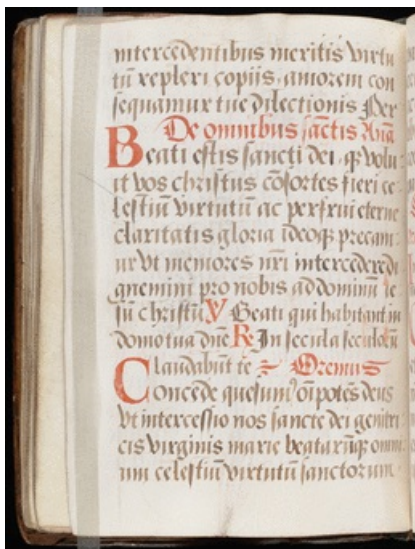 intercedentibus meritis virtu
tū repleri copiis amorem con
sequamur tue dilectionis Per
De omnibus sāctis Ana
Beati estis sancti dei q̨ volu
it vos christus cōsortes fieri ce
lestiū virtutū ac perfrui eterne
claritatis gloria ideoq̨ precam
ur vt memores nr̄i intercedere di
gnemini pro nobis ad dominū ie
sū christū V Beati qui habitant in
domo tua dn̄e R In secula seculorū
laudabūt te Oremus
Concede quesum' oīpotēs deus
vt intercessio nos sancte dei genitri
cis virginis marie beatarūq̨ omni
um celestiū virtutū sanctorum